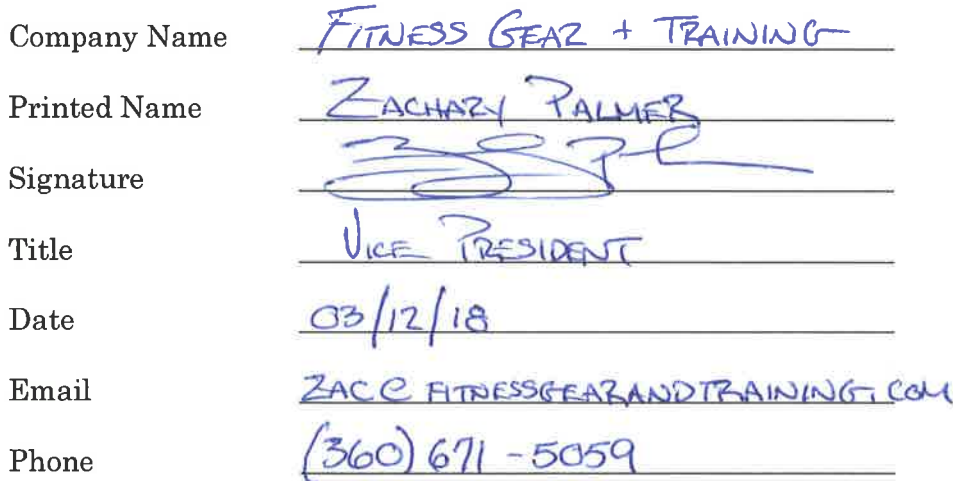 Company Name FITNESS GEAR + TRAINING
Printed Name ZACHARY PALMER
Signature
Title VICE PRESIDENT
Date 03/12/18
Email ZAC@FITNESSGEARANDTRAINING.COM
Phone (360) 671-5059